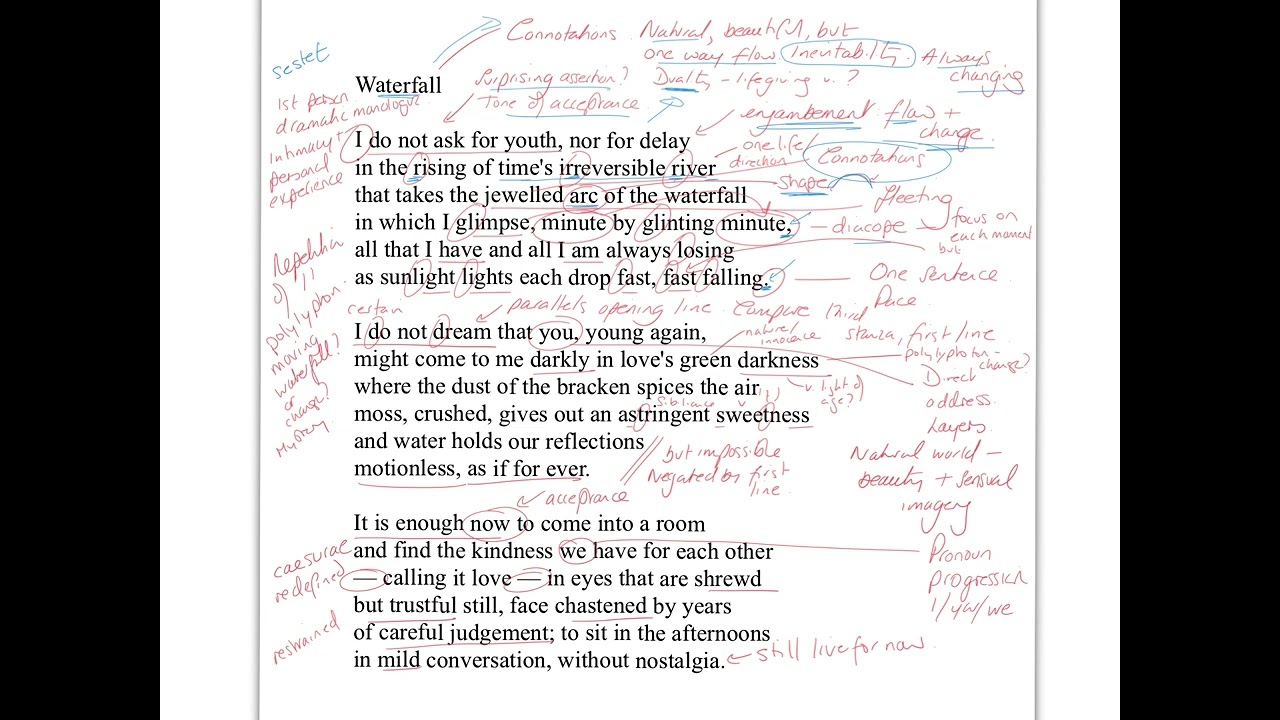 Connotations. Natural, beautiful, but
one way flow. Inevitability. Always
changing
sestet
Waterfall
Surprising assertion? Duality - lifegiving v. ?
Tone of acceptance
1st person
dramatic monologue
Intimacy +
personal
experience
enjambement flow +
change
I do not ask for youth, nor for delay
one life/
direction
Connotations
in the rising of time's irreversible river
shape
that takes the jewelled arc of the waterfall
fleeting
in which I glimpse, minute by glinting minute,
- diacope
focus on
each moment
but
all that I have and all I am always losing
as sunlight lights each drop fast, fast falling.
One sentence
Pace
Repetition
of
polyptyphon.
moving
waterfall?
or
change?
Mystery
certain
parallels opening line. Compare third
stanza, first line
I do not dream that you, young again,
nature/
innocence
might come to me darkly in love's green darkness
polylyphoton-
change?
where the dust of the bracken spices the air
v. light of
age?
Direct
address.
Layers
sibilance
moss, crushed, gives out an astringent sweetness
and water holds our reflections
motionless, as if for ever.
but impossible
Negated by first
line.
Natural world -
beauty + sensual
imagery
acceptance
It is enough now to come into a room
and find the kindness we have for each other
Pronoun
progression
I/you/we
caesurae
redefined
— calling it love — in eyes that are shrewd
but trustful still, face chastened by years
restrained
of careful judgement; to sit in the afternoons
in mild conversation, without nostalgia.
still live for now.